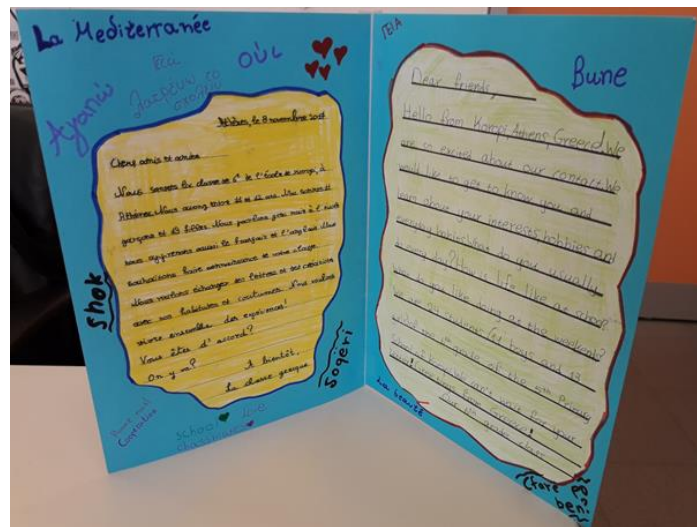 La Mediterranée
Γεια
ΟÙL
Αγαπώ
Λατρεύω το
σχολείο
Athènes, le 8 novembre
Chers amis et amies
Nous sommes la classe de 6e de l'école de
Athènes. Nous avons entre 11 et 12 ans. Nous sommes 11
garçons et 13 filles. Nous parlons grec mais à l'école
nous apprenons aussi le français et l'anglais. Nous
souhaitons faire connaissance et votre classe.
Nous voulons échanger des lettres et des créations
avec nos habitudes et coutumes. Nous voulons
vivre ensemble des expériences!
Vous êtes d'accord?
On y va?
A bientôt,
La classe grecque
Shok
Sogeri
Cooperation
School
love
classmates
ΓΕΙΑ
Bune
Dear friends,
Hello from Athens, Greece! We
are so excited about our contact. We
would like to get to know you and
learn about your interests, hobbies and
everyday habits. What do you usually
do every day? How is life like at school?
What do you like doing at the weekends?
We are 24 students (11 boys and 13
girls) the 6th grade of the Primary
School. We can't wait for your
news! Love from Greece!
The 6th grade class
La beauté